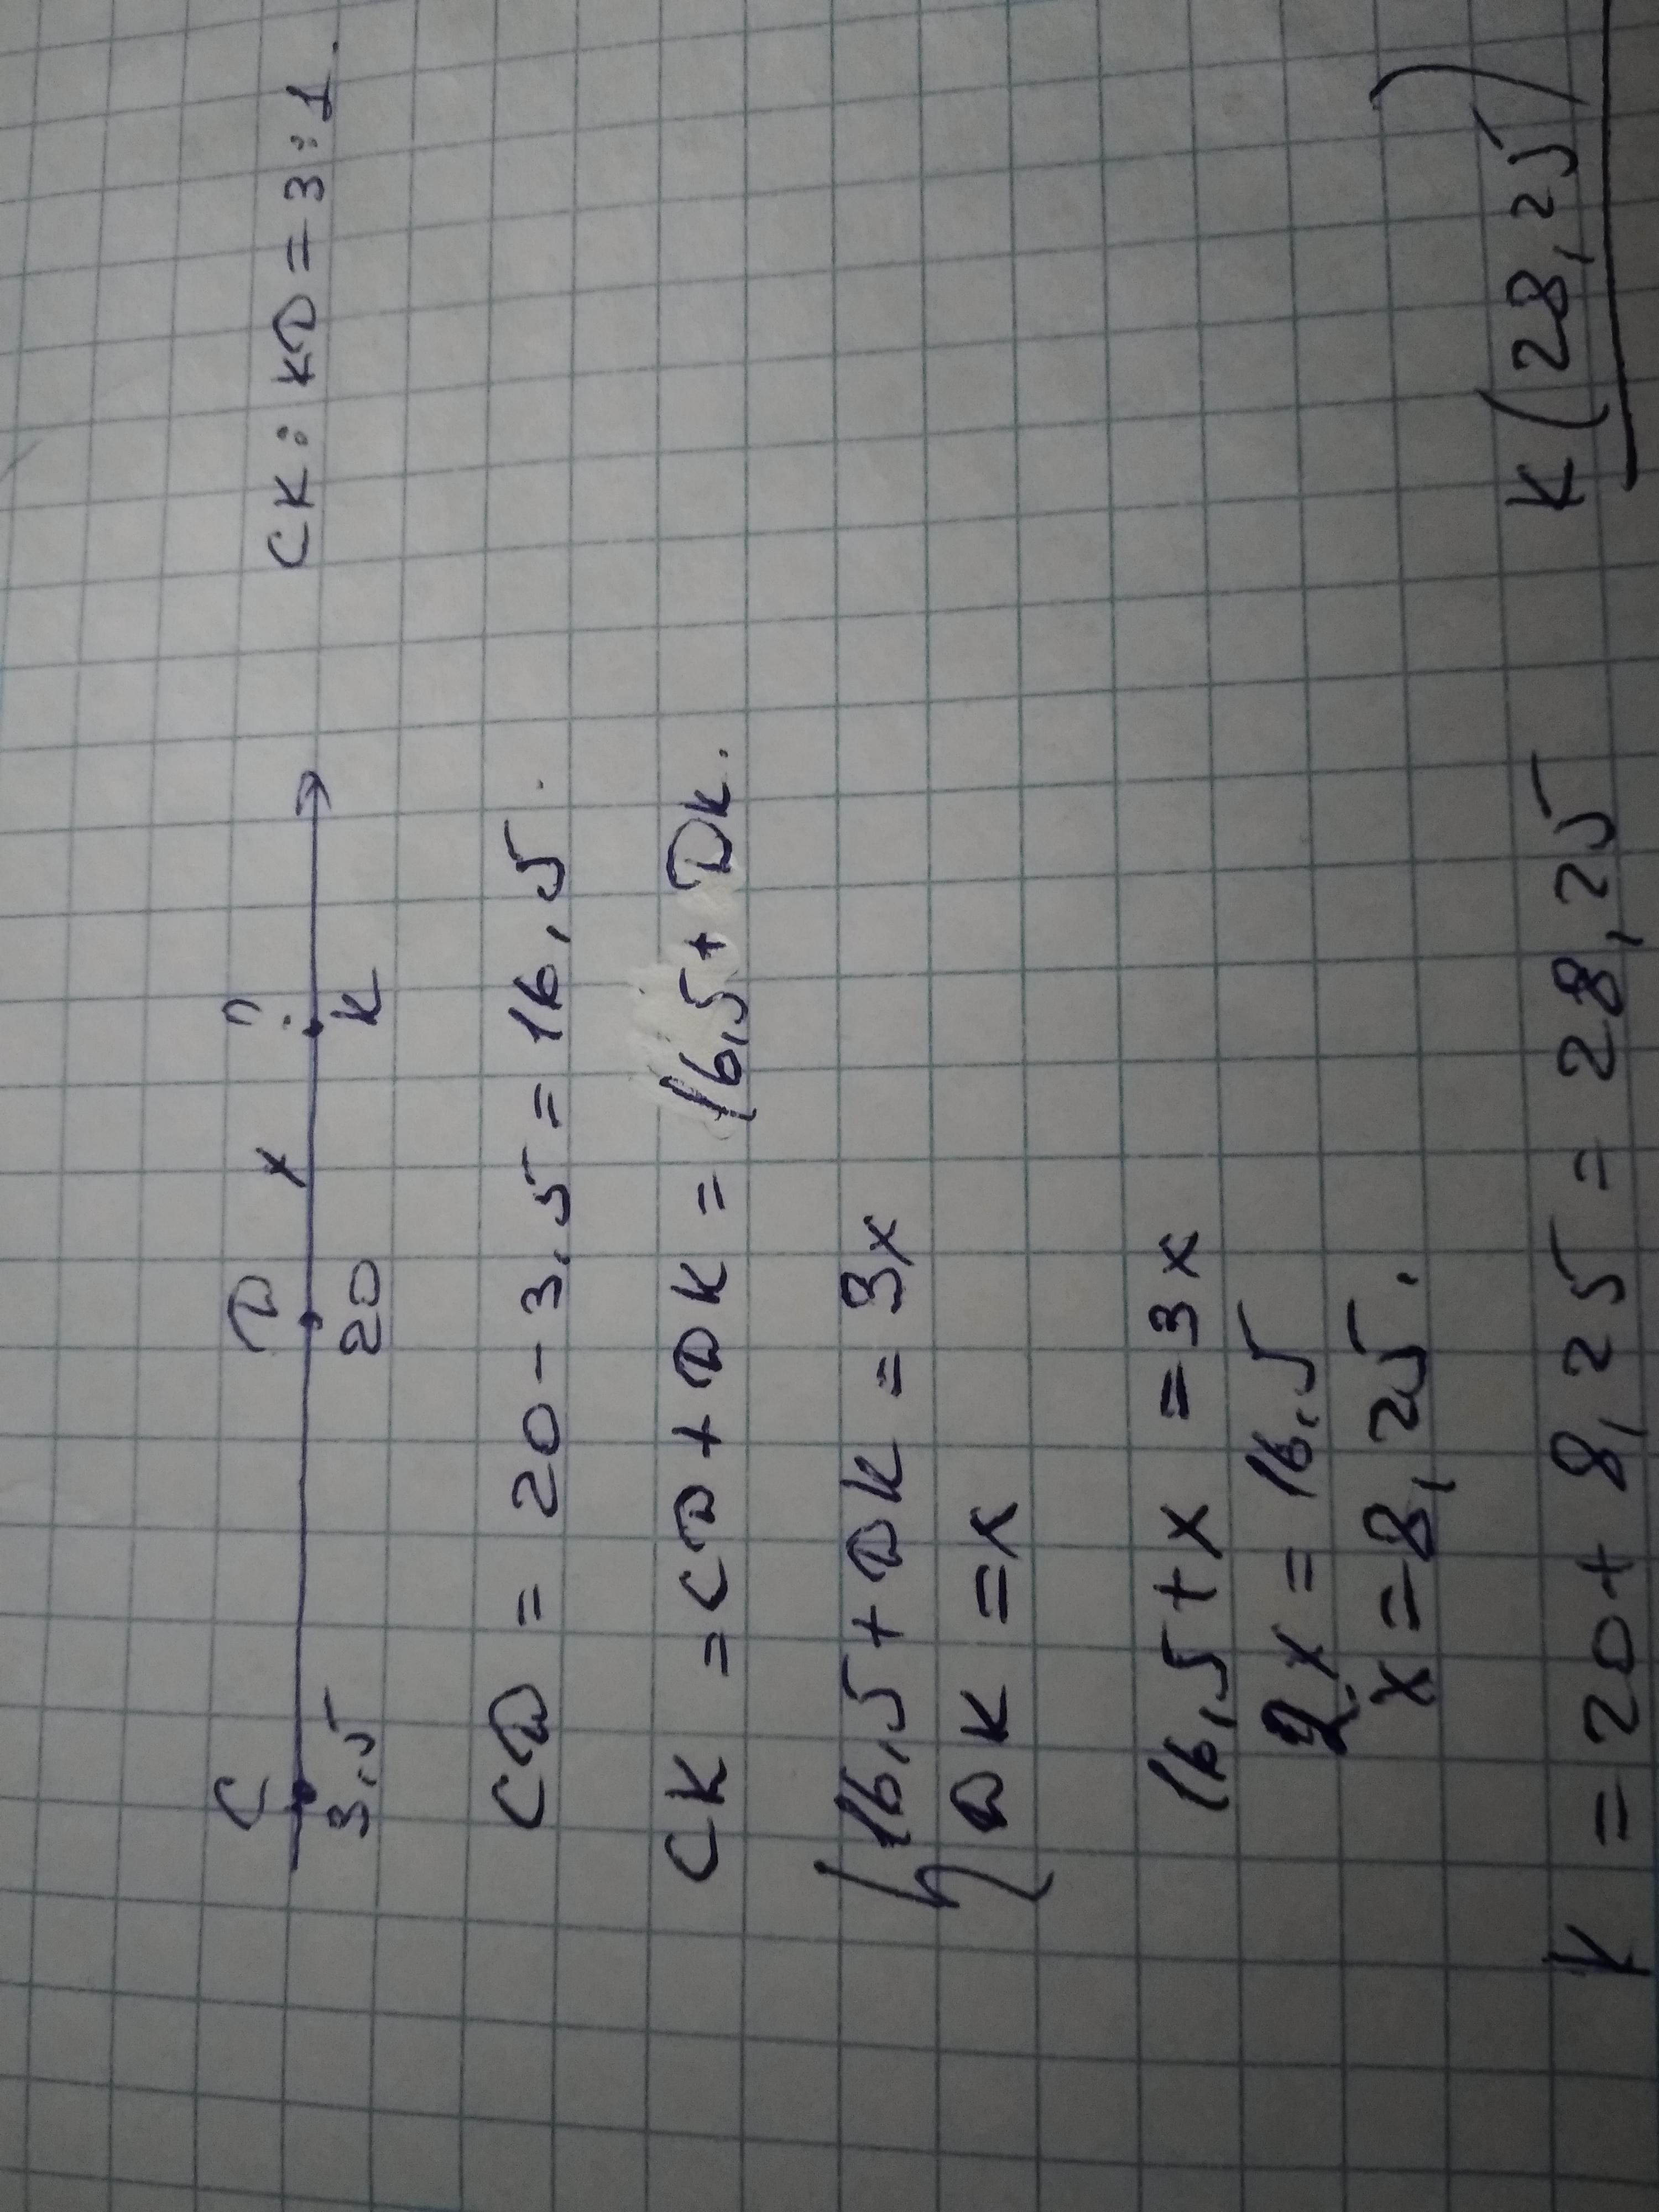 C D x ? CK : KD = 3 : 1.
3,5 20 K
CD = 20 - 3,5 = 16,5.
CK = CD + DK = 16,5 + DK.
{ 16,5 + DK = 3x
DK = x
16,5 + x = 3x
2x = 16,5
x = 8,25.
K = 20 + 8,25 = 28,25
K (28,25)